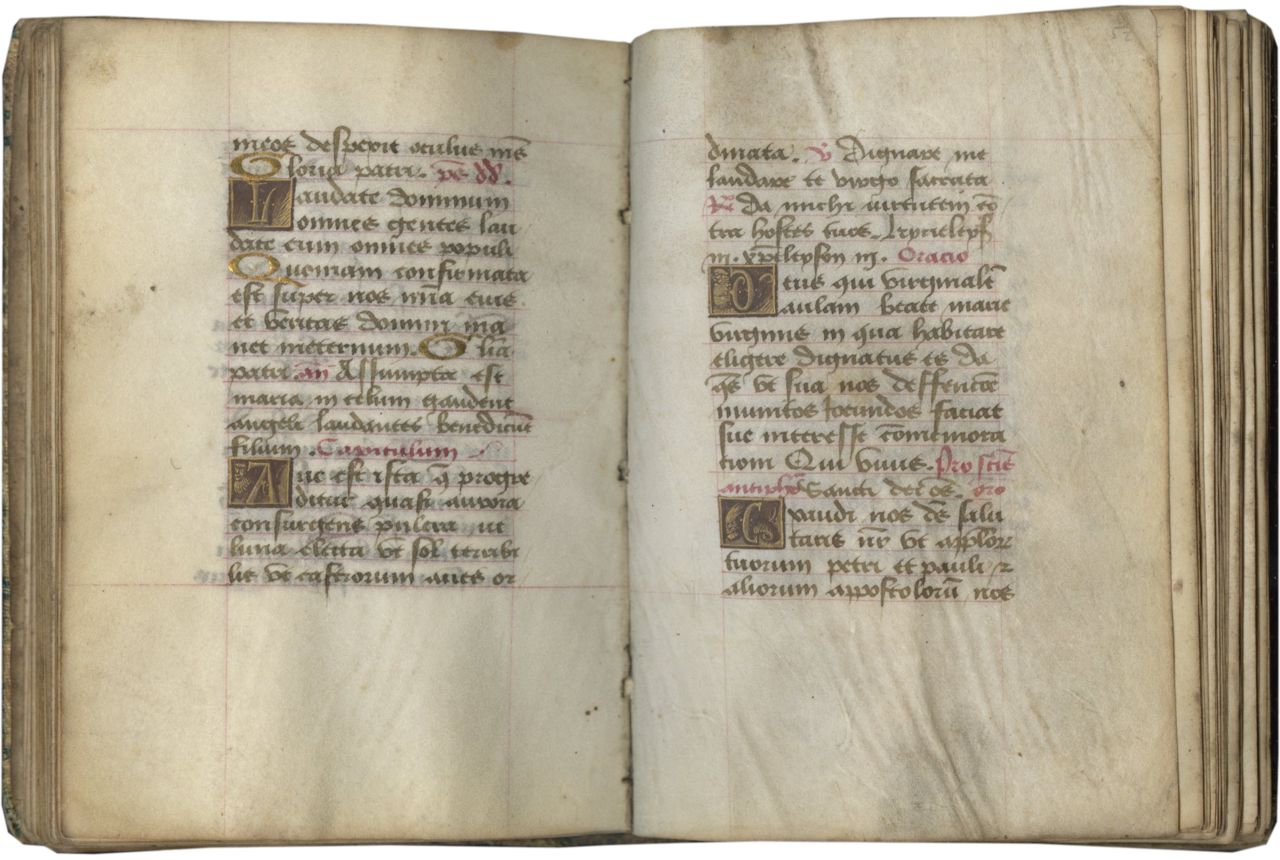 meos despexit oculus mēs
Gloria patri. ps dd.
Laudate dominum
omnes gentes lau
date eum omnes populi
Quoniam confirmata
est super nos mīa eius
et veritas domini ma
net ineternum. Glia
patri. an Assumpta est
maria in celum gaudent
angeli laudantes benedicūt
filium. Capitulum
Que est ista q̄ progre
ditur quasi aurora
consurgens pulcra ut
luna electa vt sol terribi
lis vt castrorum acies or
dinata. v Dignare me
laudare te virgo sacrata
R Da michi virtutem cō
tra hostes tuos. kyrieleyson
iij. xp̄eleyson iij. Oracio
Deus qui virginalē
aulam beate marie
virginis in qua habitare
eligere dignatus es da
qs vt sua nos deffencōe
munitos Jocundos faciat
sue interesse cōmemora
tioni Qui viuis. Pro sctīs
antiphō Sancti dei oēs. oro
Exaudi nos ds salu
taris nr vt applōr
tuorum petri et pauli z
aliorum appostolorū nos